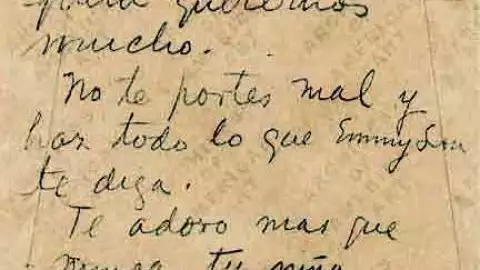 para queremos
mucho.
No te portes mal y
haz todo lo que Emmy Lou
te diga.
Te adoro mas que
nunca tu niña